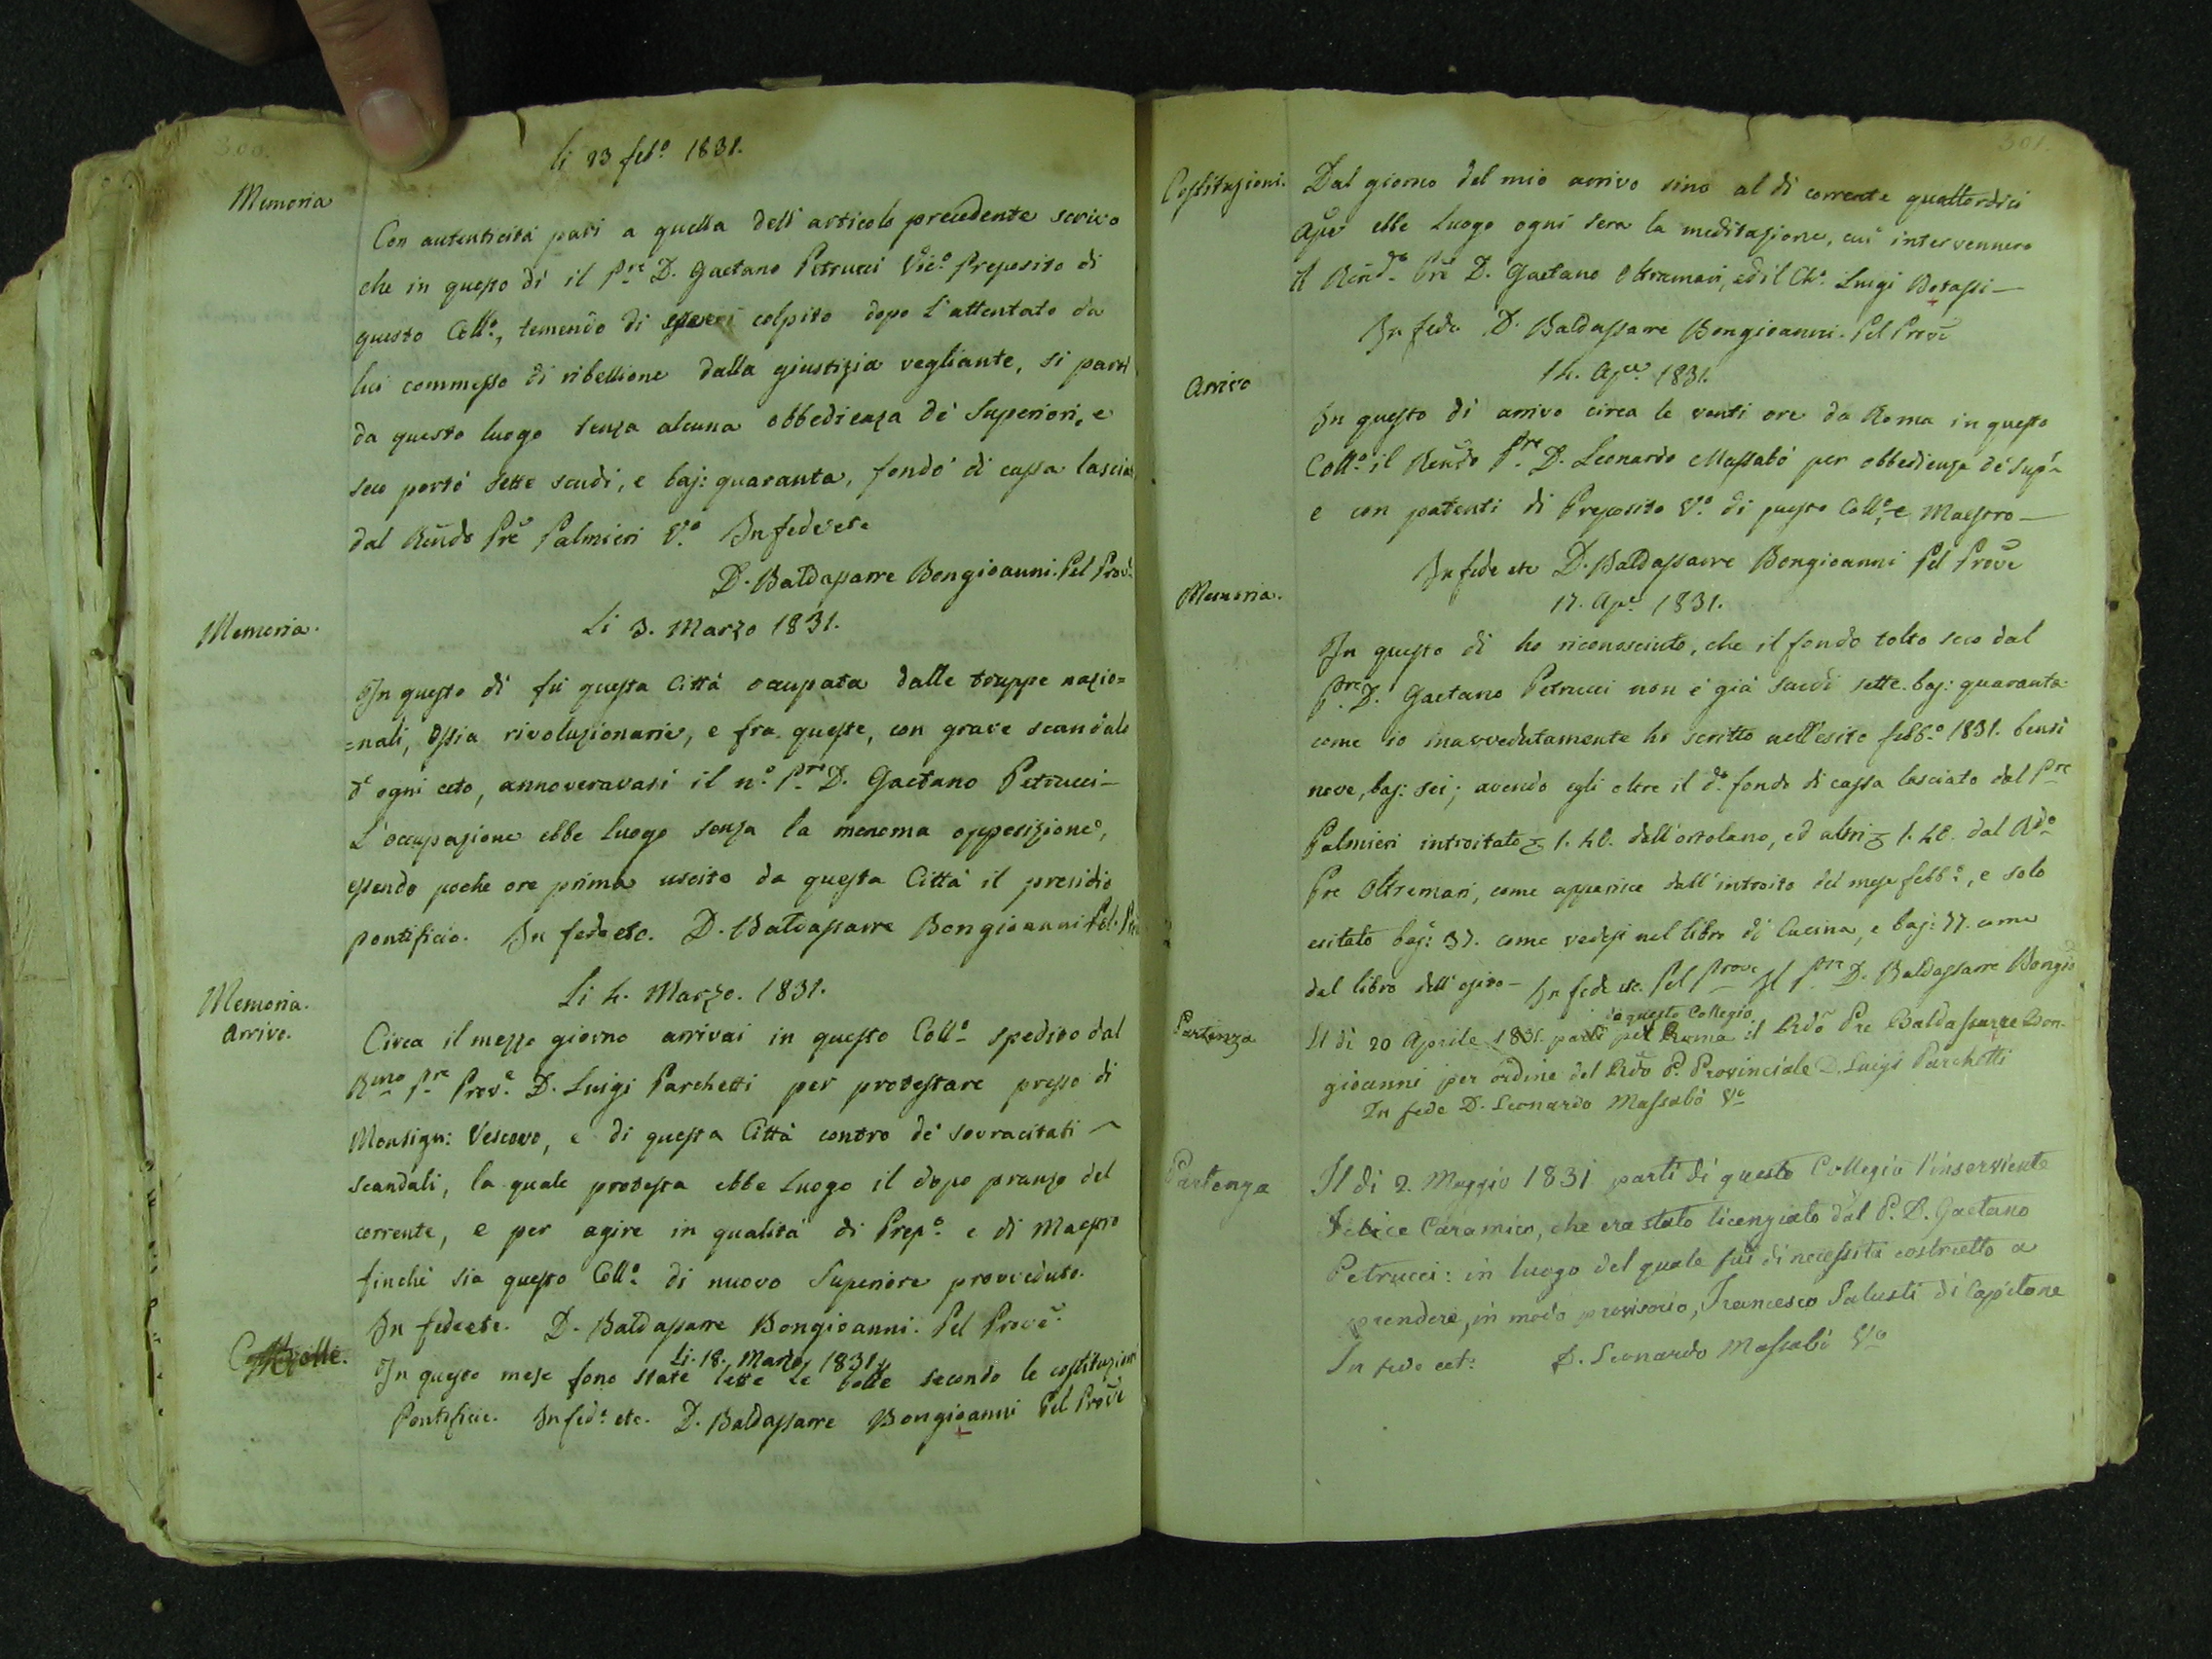 300.
li 23 feb.o 1831.
Memoria
Con autenticità pari a quella dell'articolo precedente scrivo
che in questo dì il P.re D. Gaetano Petrucci Vic.o Preposito di
questo Coll.o, temendo di essere colpito dopo l'attentato da
lui commesso di ribellione dalla giustizia vegliante, si partì
da questo luogo senza alcuna obbedienza de' Superiori, e
seco portò sette scudi, e baj: quaranta, fondo di cassa lascia
dal Rendo Pre Palmieri V.o In fede etc
D. Baldassarre Bongioanni. Pel Prov.e
Memoria.
Li 3. Marzo 1831.
In questo dì fù questa Città occupata dalle truppe nazio=
=nali, ossia rivoluzionarie, e fra queste, con grave scandalo
d'ogni ceto, annoveravasi il n.o P.re D. Gaetano Petrucci—
L'occupazione ebbe luogo senza la menoma opposizione,
essendo poche ore prima uscito da questa Città il presidio
pontificio. In fede etc. D. Baldassarre Bongioanni Pel. Pr
Li 4. Marzo. 1831.
Memoria.
Arrivo.
Circa il mezzo giorno arrivai in questo Coll.o spedito dal
R.mo P.re Prov.e D. Luigi Parchetti per protestare presso di
Monsign: Vescovo, e di questa Città contro de' sovracitati
scandali, la quale protesta ebbe luogo il dopo pranzo del
corrente, e per agire in qualità di Prep.o e di Maestro
finchè sia questo Coll.o di nuovo Superiore provveduto.
In fede etc. D. Baldassarre Bongioanni. Pel Prov.e
Li. 18. Marzo 1831.
In questo mese sono state lette le bolle secondo le costituzioni
Pontificie. In fed.e etc. D. Baldassarre Bongioanni Pel Prove
301.
Costituzioni.
Dal giorno del mio arrivo sino al dì corrente quattordici
Ap.e ebbe luogo ogni sera la meditazione, cui intervennero
il Rend.o Pre D. Gaetano Oltremari, ed il Ch.o Luigi Botassi—
In fede D. Baldassarre Bongioanni. Pel Prove
14. Ap.e 1831.
Arrivo
In questo dì arrivo circa le venti ore da Roma in questo
Coll.o il Rendo P.re D. Leonardo Massabò per obbedienza de' Sup.ri
e con patenti di Preposito V.o di questo Coll.o, e Maestro—
In fede etc D. Baldassarre Bongioanni Pel Prove
Memoria.
17. Ap.e 1831.
In questo dì ho riconosciuto, che il fondo tolto seco dal
P.re D. Gaetano Petrucci non è già scudi sette. baj: quaranta
come io inavvedutamente ho scritto nell'esito febb.o 1831. bensì
nove, baj: sei; avendo egli oltre il d.o fondo di cassa lasciato dal P.re
Palmieri introitato 1. 40. dall'ortolano, ed altri 1. 40. dal R.do
Pre Oltremari, come apparisce dall'introito del mese febb.o, e solo
esitato baj: 37. come vedesi nel libro di Cucina, e baj: 77. come
dal libro dell'esito— In fede etc. Pel Prove Il P.re D. Baldassarre Bongio
Partenza
da questo Collegio
Il dì 20 Aprile 1831. partì per Roma il Rdo Pre Baldassarre Bon-
gioanni per ordine del Rdo P. Provinciale D. Luigi Parchetti
In fede D. Leonardo Massabò V.o
Partenza
Il dì 2. Maggio 1831 partì di questo Collegio l'inserviente
Felice Caramico, che era stato licenziato dal P. D. Gaetano
Petrucci: in luogo del quale fui di necessità costretto a
prendere, in modo provisorio, Francesco Salusti di Capitone
In fede cet: D. Leonardo Massabò V.o